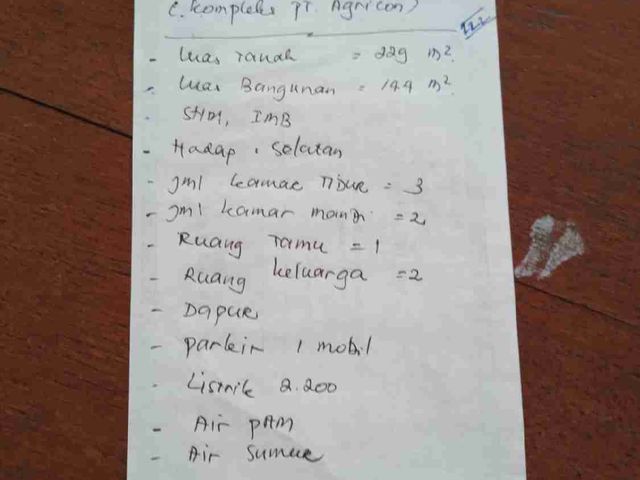 (. Kompleks PT. Agricon)
- Luas Tanah = 229 m².
- Luas Bangunan = 144 m².
- SHM, IMB
- Hadap : Selatan
- Jml kamar Tidur = 3
- Jml kamar mandi = 2
- Ruang Tamu = 1
- Ruang keluarga = 2
- Dapur
- parkir 1 mobil
- Listrik 2.200
- Air PAM
- Air Sumur